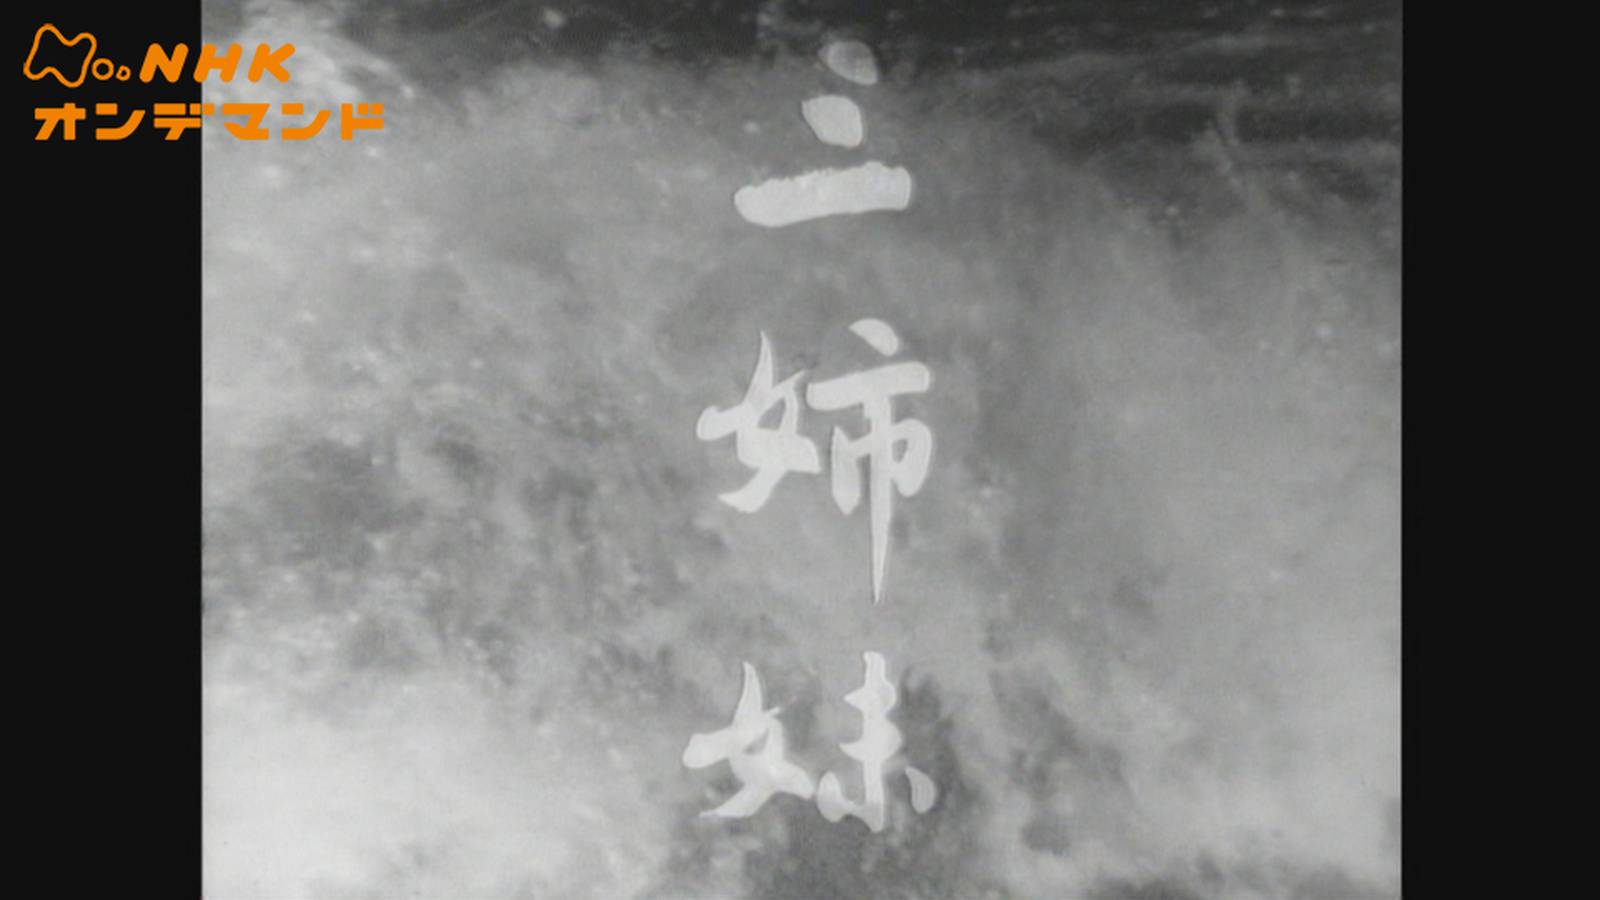 NHK
オンデマンド
三姉妹